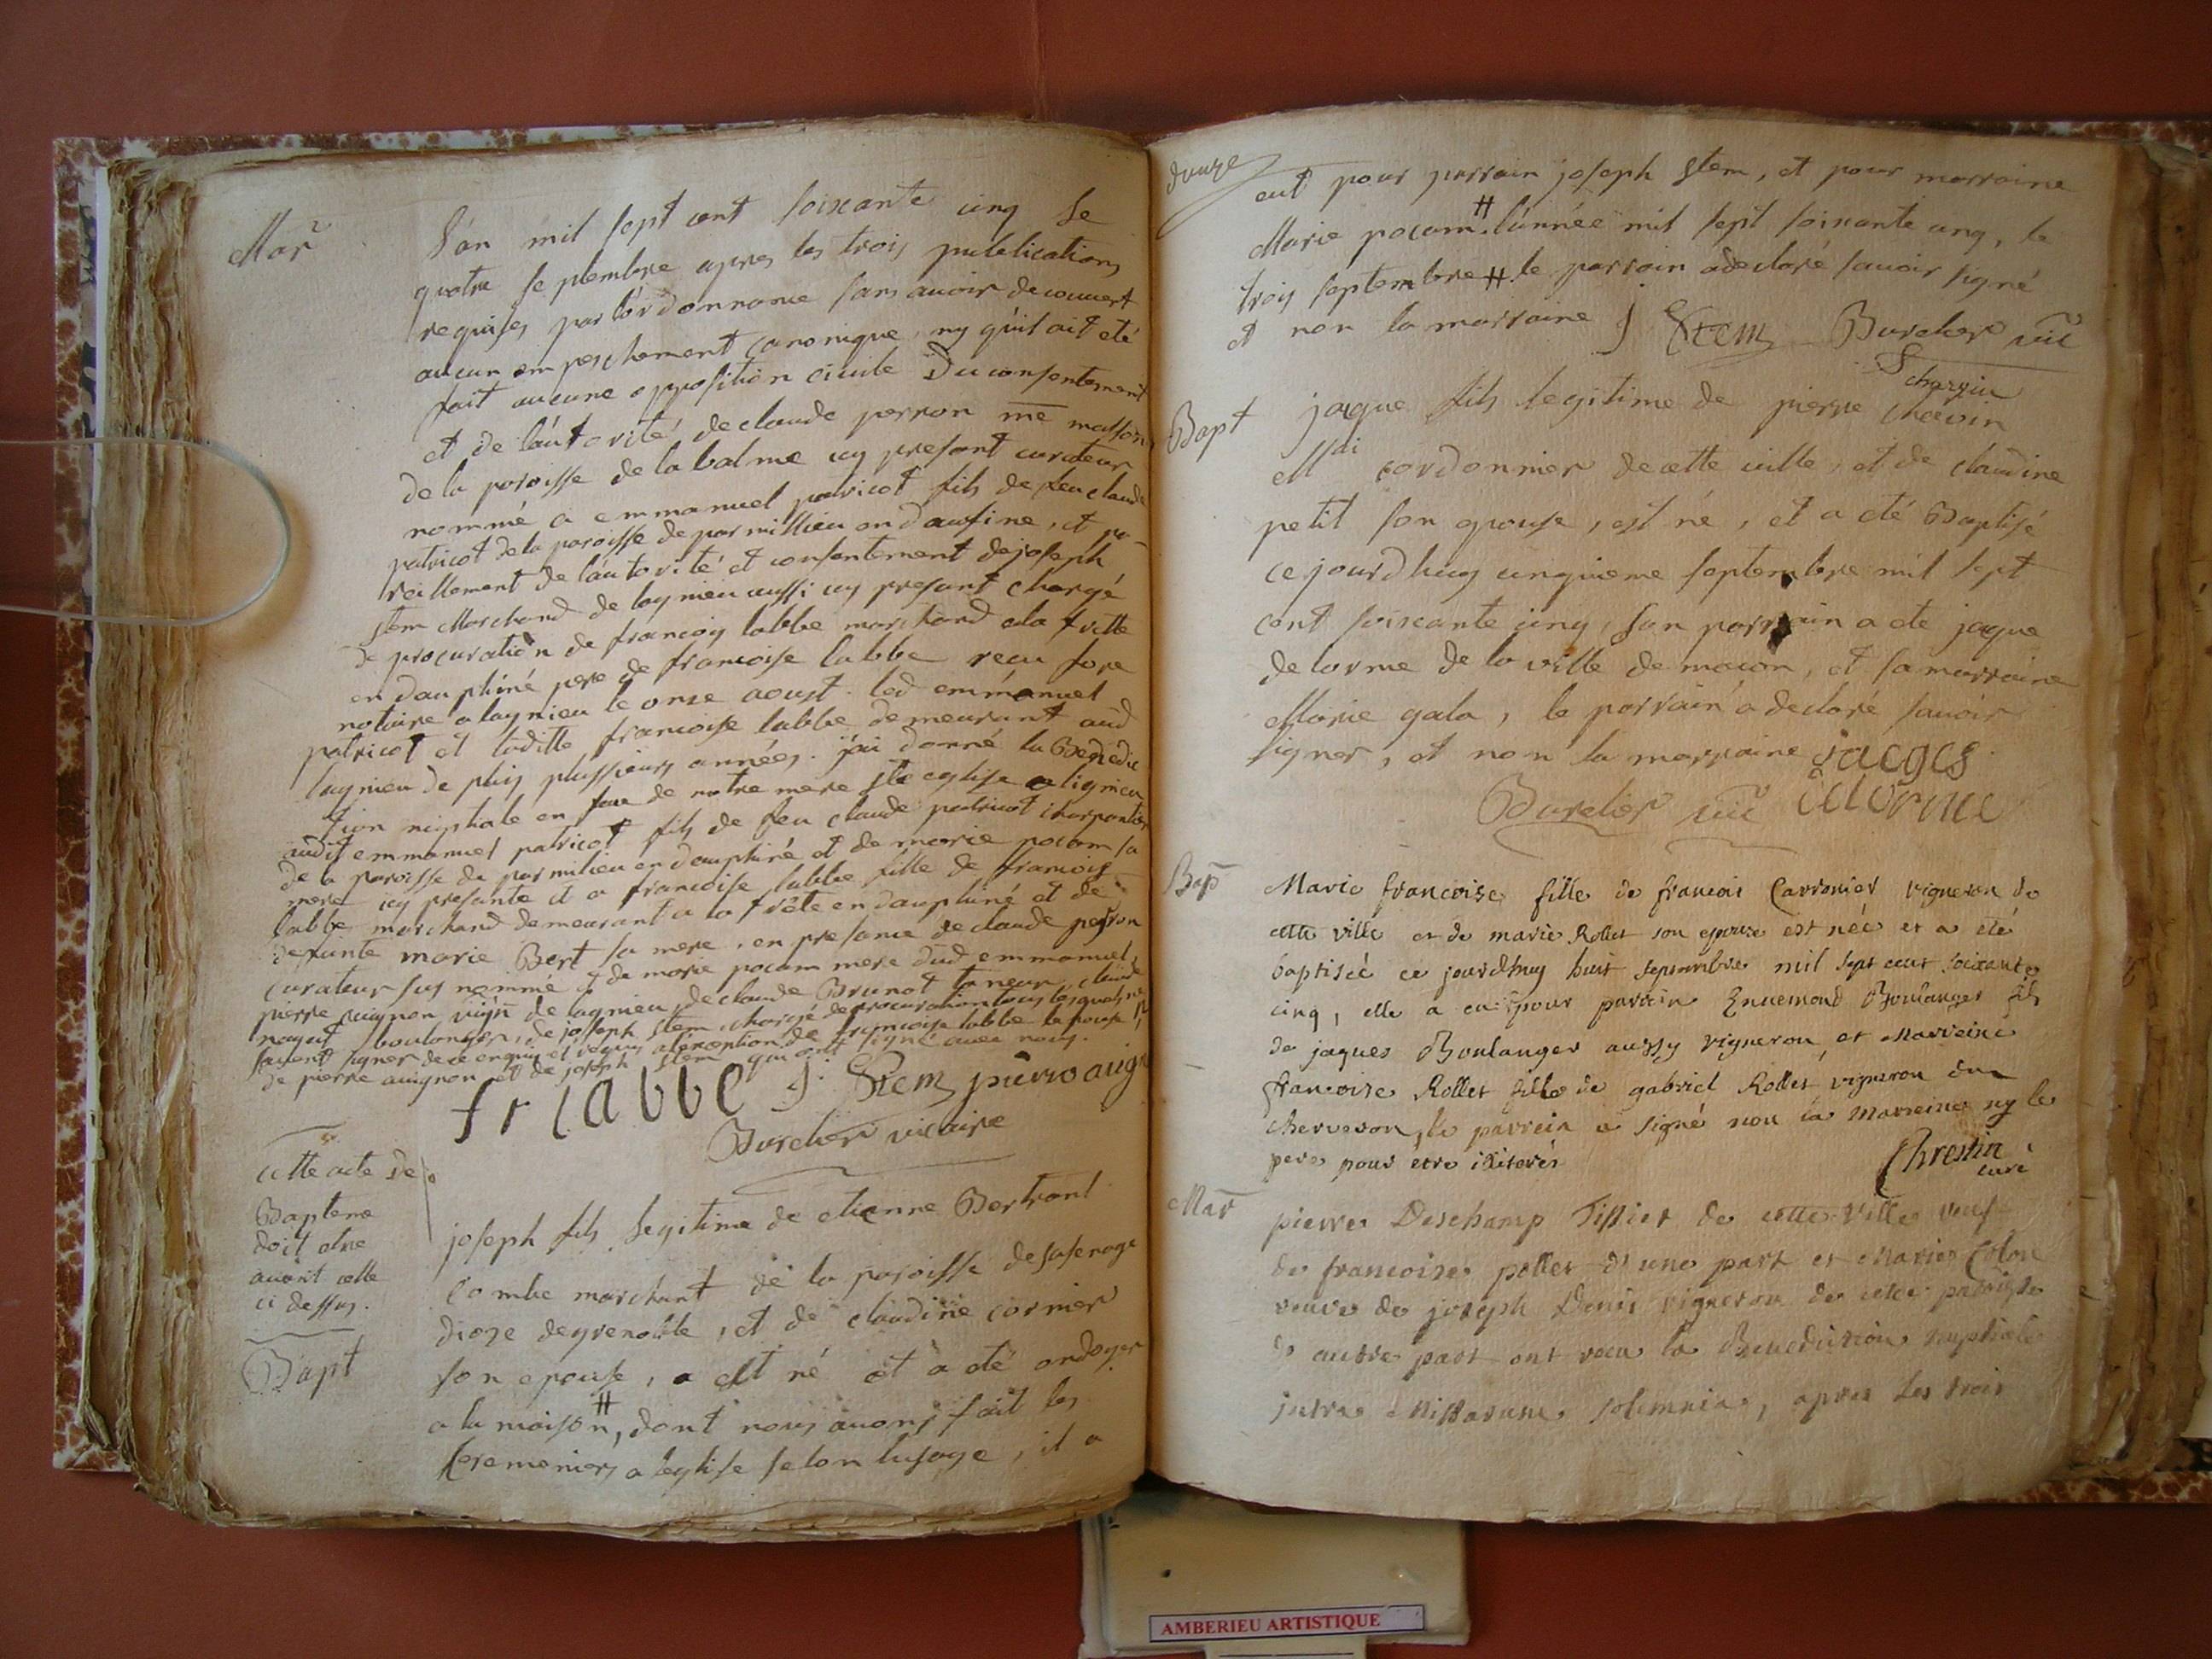 Mar
L'an mil sept cent soixante cinq le
quatre septembre apres les trois publications
requises par l'ordonnance sans avoir decouvert
aucun empeschement canonique, ny qu'il ait eté
fait aucune opposition civile Du consentement
et de l'autorité de claude perron me masson
de la paroisse de la balme icy present curateur
nommé a emmanuel patricot fils de feu claude
patricot de la paroisse de parmillieu en daufine, et pa-
reillement de l'autorité et consentement de joseph
stem Marchand de lagnieu aussi icy present chargé
de procuration de francois labbe marchand a la frette
en dauphiné pere de francoise labbe recu fore
notaire a lagnieu le onze aoust. led emmanuel
patricot et laditte francoise labbe demeurant aud
lagnieu depuis plussieurs années. j'ai donné la Benedic
tion nuptiale en face de notre mere ste eglise a lignieu
audit emmanuel patricot fils de feu claude patricot charpentier
de la paroisse de parmilieu en dauphiné et de marie pocam sa
mere icy presente et a francoise labbe fille de francois
labbe marchand demeurant a la frete en dauphiné et de
defunte marie Bert sa mere, en presence de claude perron
curateur sus nommé et de marie pocam mere dud emmanuel,
pierre auignon vign de lagnieu, de claude Brunot taneur, claude
nayut boulonger, de joseph stem chargé de procuration tous lesquels ne
sauent signer de ce enquis et requis a l'exception de francoise labbe lepouse,
de pierre auignon et de joseph stem qui ont signé avec nous.
fr labbe J. Stem pierro auign
Burelier vicaire
cette acte de
Bapteme
doit etre
auant celle
ci dessus.
Bapt
joseph fils legitime de etienne Bertrant
Combe marchant de la paroisse de sasenage
dioze de grenoble, et de claudine cornier
son epouse, a est né et a eté ondoyer
a la maison #, dont nous auons fait les
ceremonies a leglise selon lusage, il a
douze
eut pour parrain joseph stem, et pour marraine
Marie pocam. # l'année mil sept soixante cinq, le
trois septembre # le parrain a declaré sauoir signé
et non la marraine J Stem Burelier vic
chervin
Bapt
jaque fils legitime de pierre chervin
Mai cordonnier de cette ville, et de claudine
petit son epouse, est né, et a eté Baptisé
ce jourdhuy cinquieme septembre mil sept
cent soixante cinq, son parrain a ete jaque
delorme de la ville de macon, et sa marraine
Marie gala, le parrain a declaré sauoir
signer, et non la marraine jacqes
Burelier vic delorme
Bap
Marie francoise fille de francois Carronier vigneron de
cette ville et de marie Rollet son epouse est née et a été
baptiseé ce jourdhuy huit septembre mil sept cent soixante
cinq, elle a eu pour parrein Ennemond Boulanger fils
de jaques Boulanger aussy vigneron, et Marreine
francoise Rollet fille de gabriel Rollet vigneron du
cherveron, le parrein a signé non la marreine ny le
pere pour être illiterés Chrestin
curé
Mar
pierre Deschamp Tissier de cette ville veuf
de francoise pollet d'une part et Marie Colon
veuve de joseph Denis vigneron de cette paroisse
d'autre part ont recu la Benediction nuptiale
intra Missarum solemnia, apres les trois
AMBERIEU ARTISTIQUE